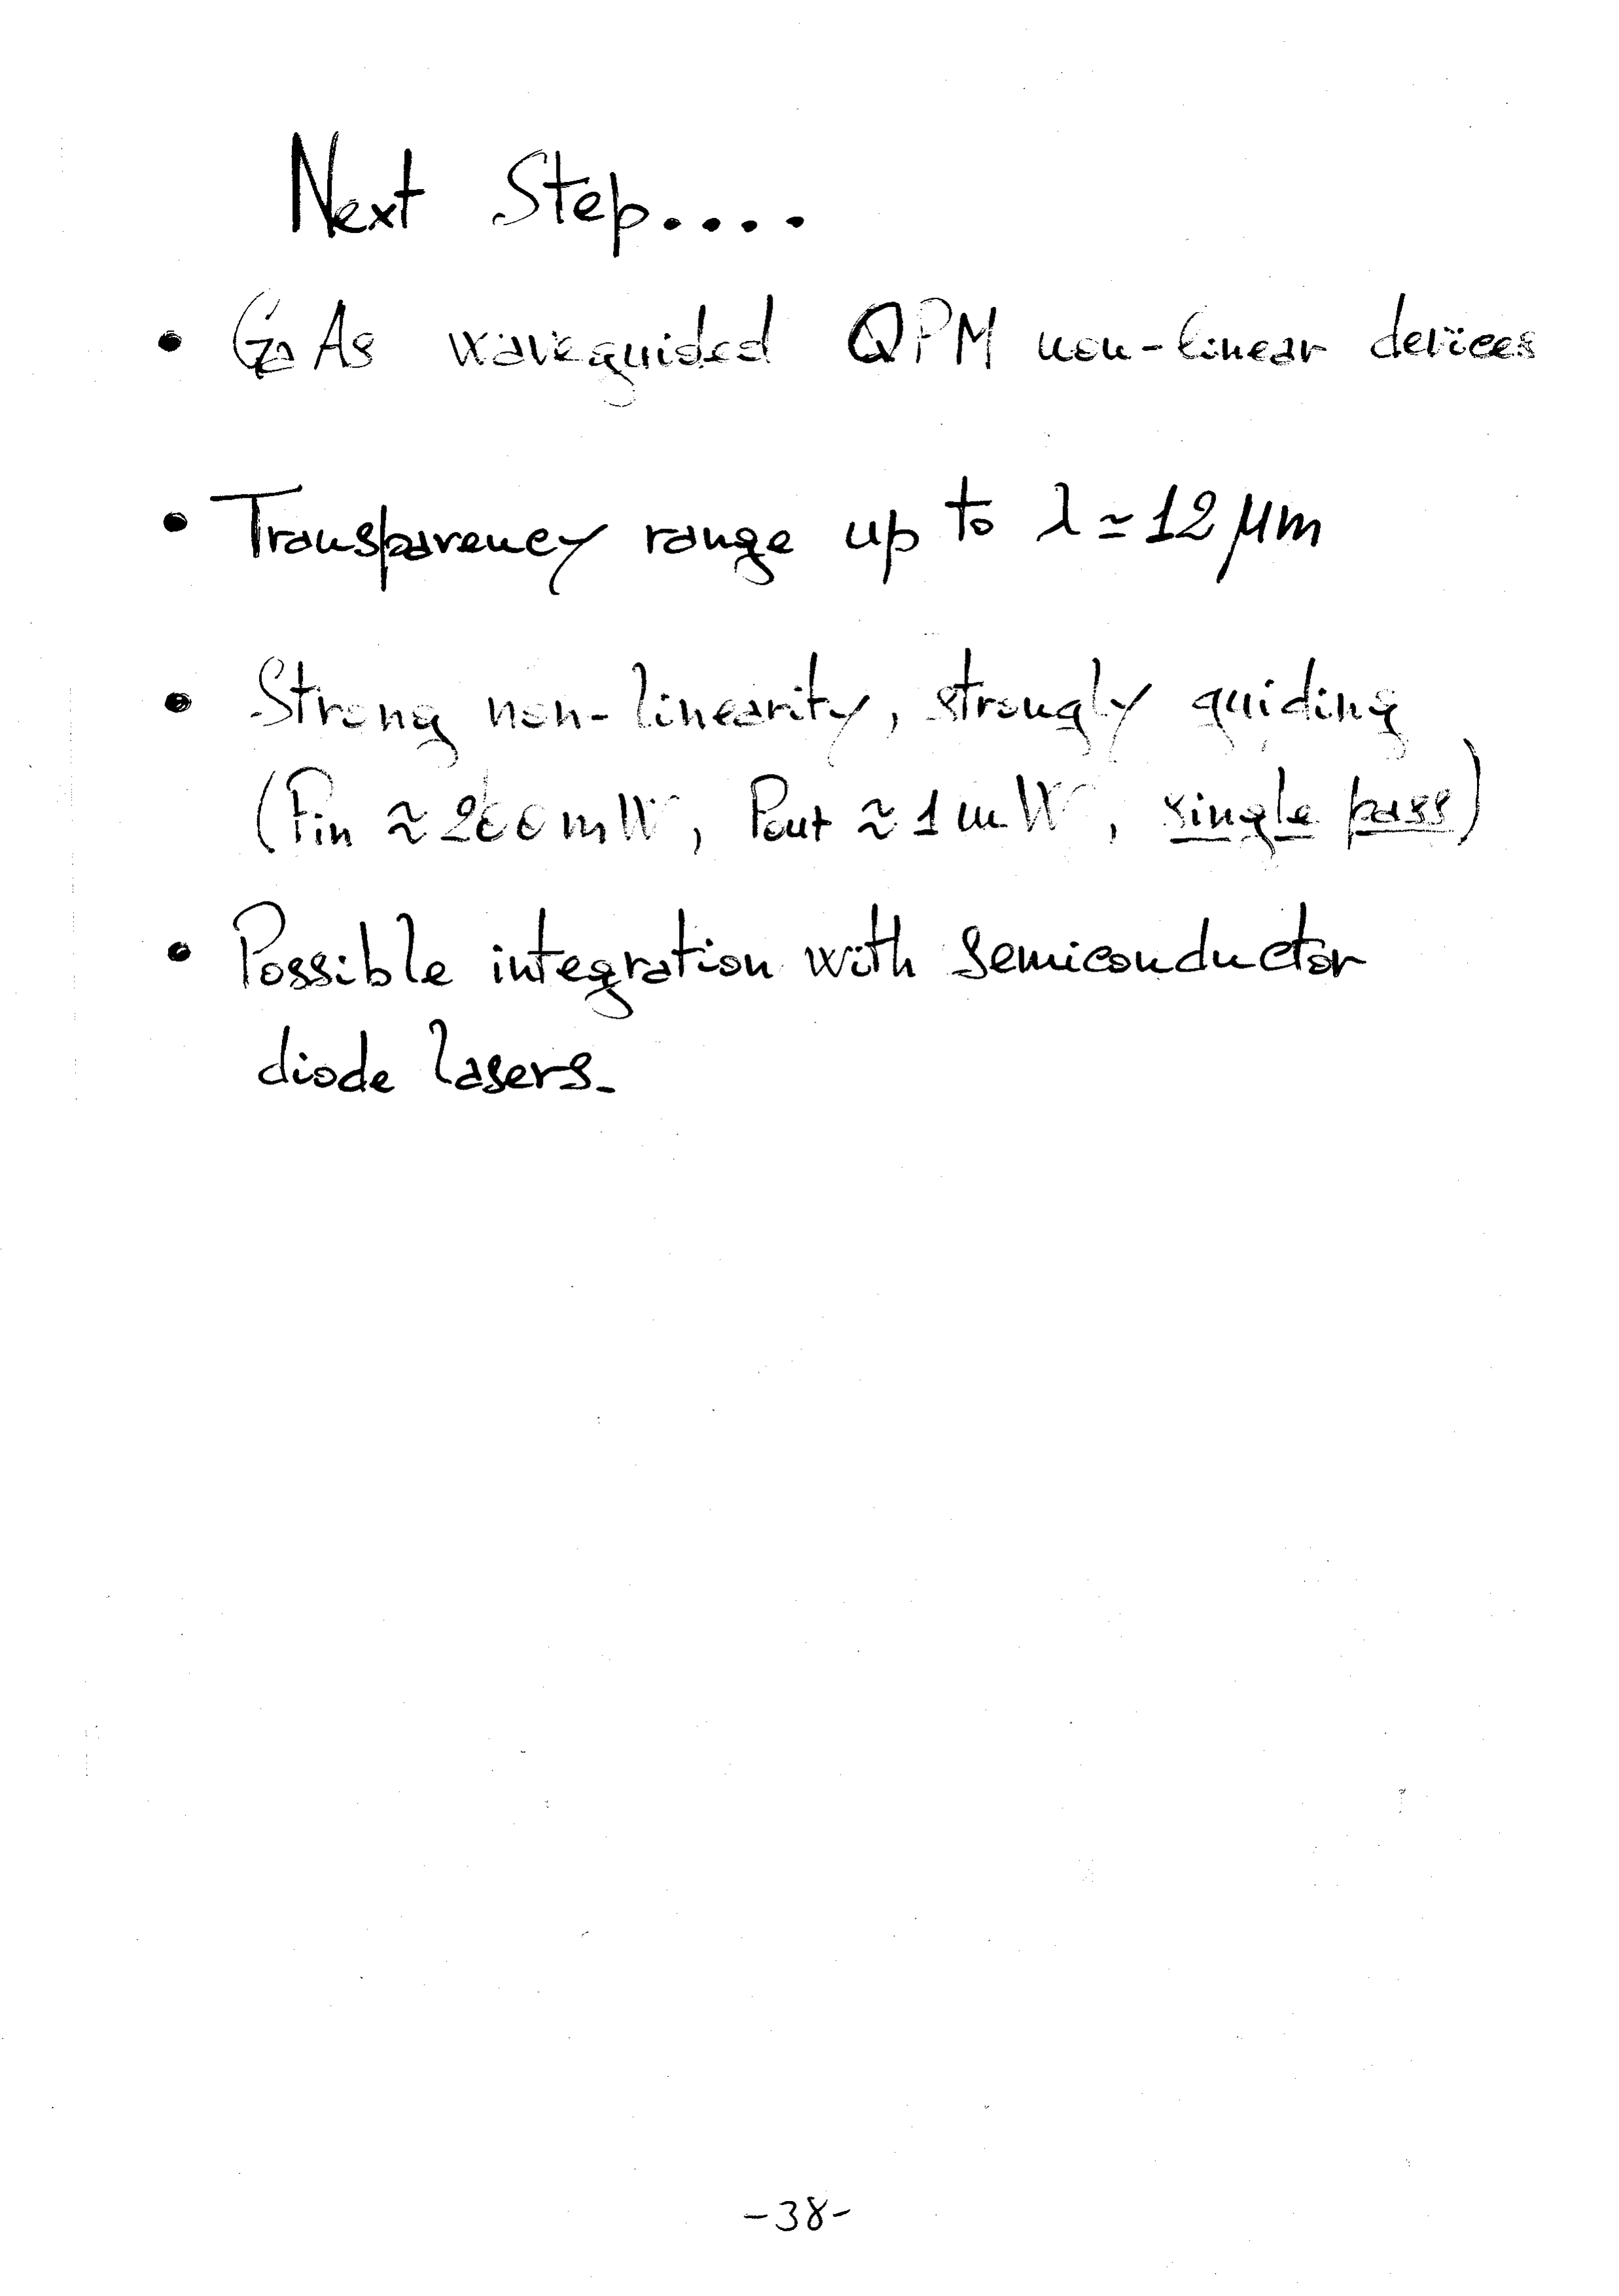 Next Step....
• GaAs waveguided QPM non-linear devices
• Transparency range up to λ ≃ 12 μm
• Strong non-linearity, strongly guiding
(Pin ≈ 200 mW, Pout ≈ 1 mW, single pass)
• Possible integration with semiconductor
diode lasers.
-38-